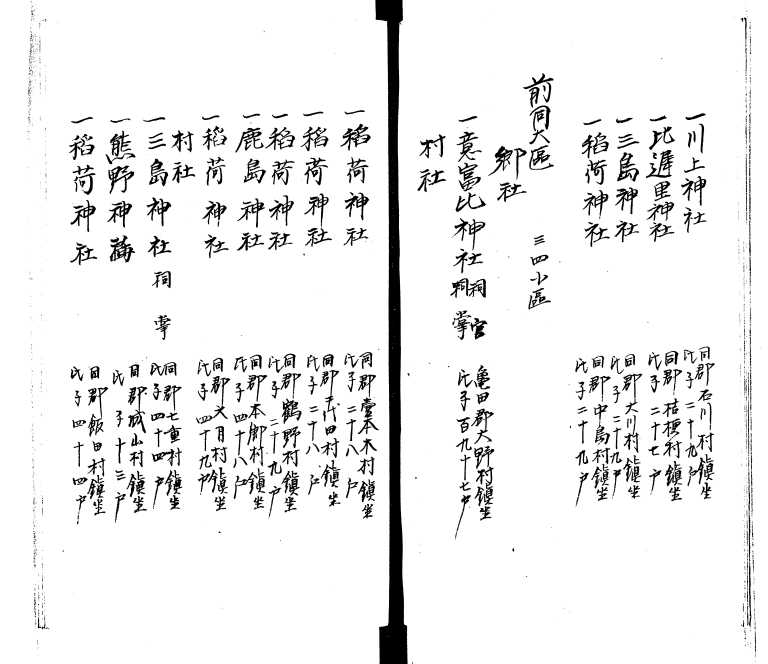 一川上神社
同郡石川村鎭坐
氏子二十九戸
一比遅里神社
同郡桔梗村鎭坐
氏子二十七戸
一三島神社
同郡大川村鎭坐
氏子二十九戸
一稻荷神社
同郡中島村鎭坐
氏子二十九戸
前同大區
三四小區
郷社
一意富比神社
祠官
祠掌
亀田郡大野村鎭坐
氏子百九十七戸
村社
一稻荷神社
同郡一本木村鎭坐
氏子二十八戸
一稻荷神社
同郡千代田村鎭坐
氏子二十八戸
一稻荷神社
同郡鶴野村鎭坐
氏子二十九戸
一鹿島神社
同郡本郷村鎭坐
氏子四十八戸
一稻荷神社
同郡文月村鎭坐
氏子四十九戸
村社
一三島神社
祠掌
同郡七重村鎭坐
氏子四十四戸
一熊野神社
同郡城山村鎭坐
氏子十三戸
一稻荷神社
同郡飯田村鎭坐
氏子四十四戸